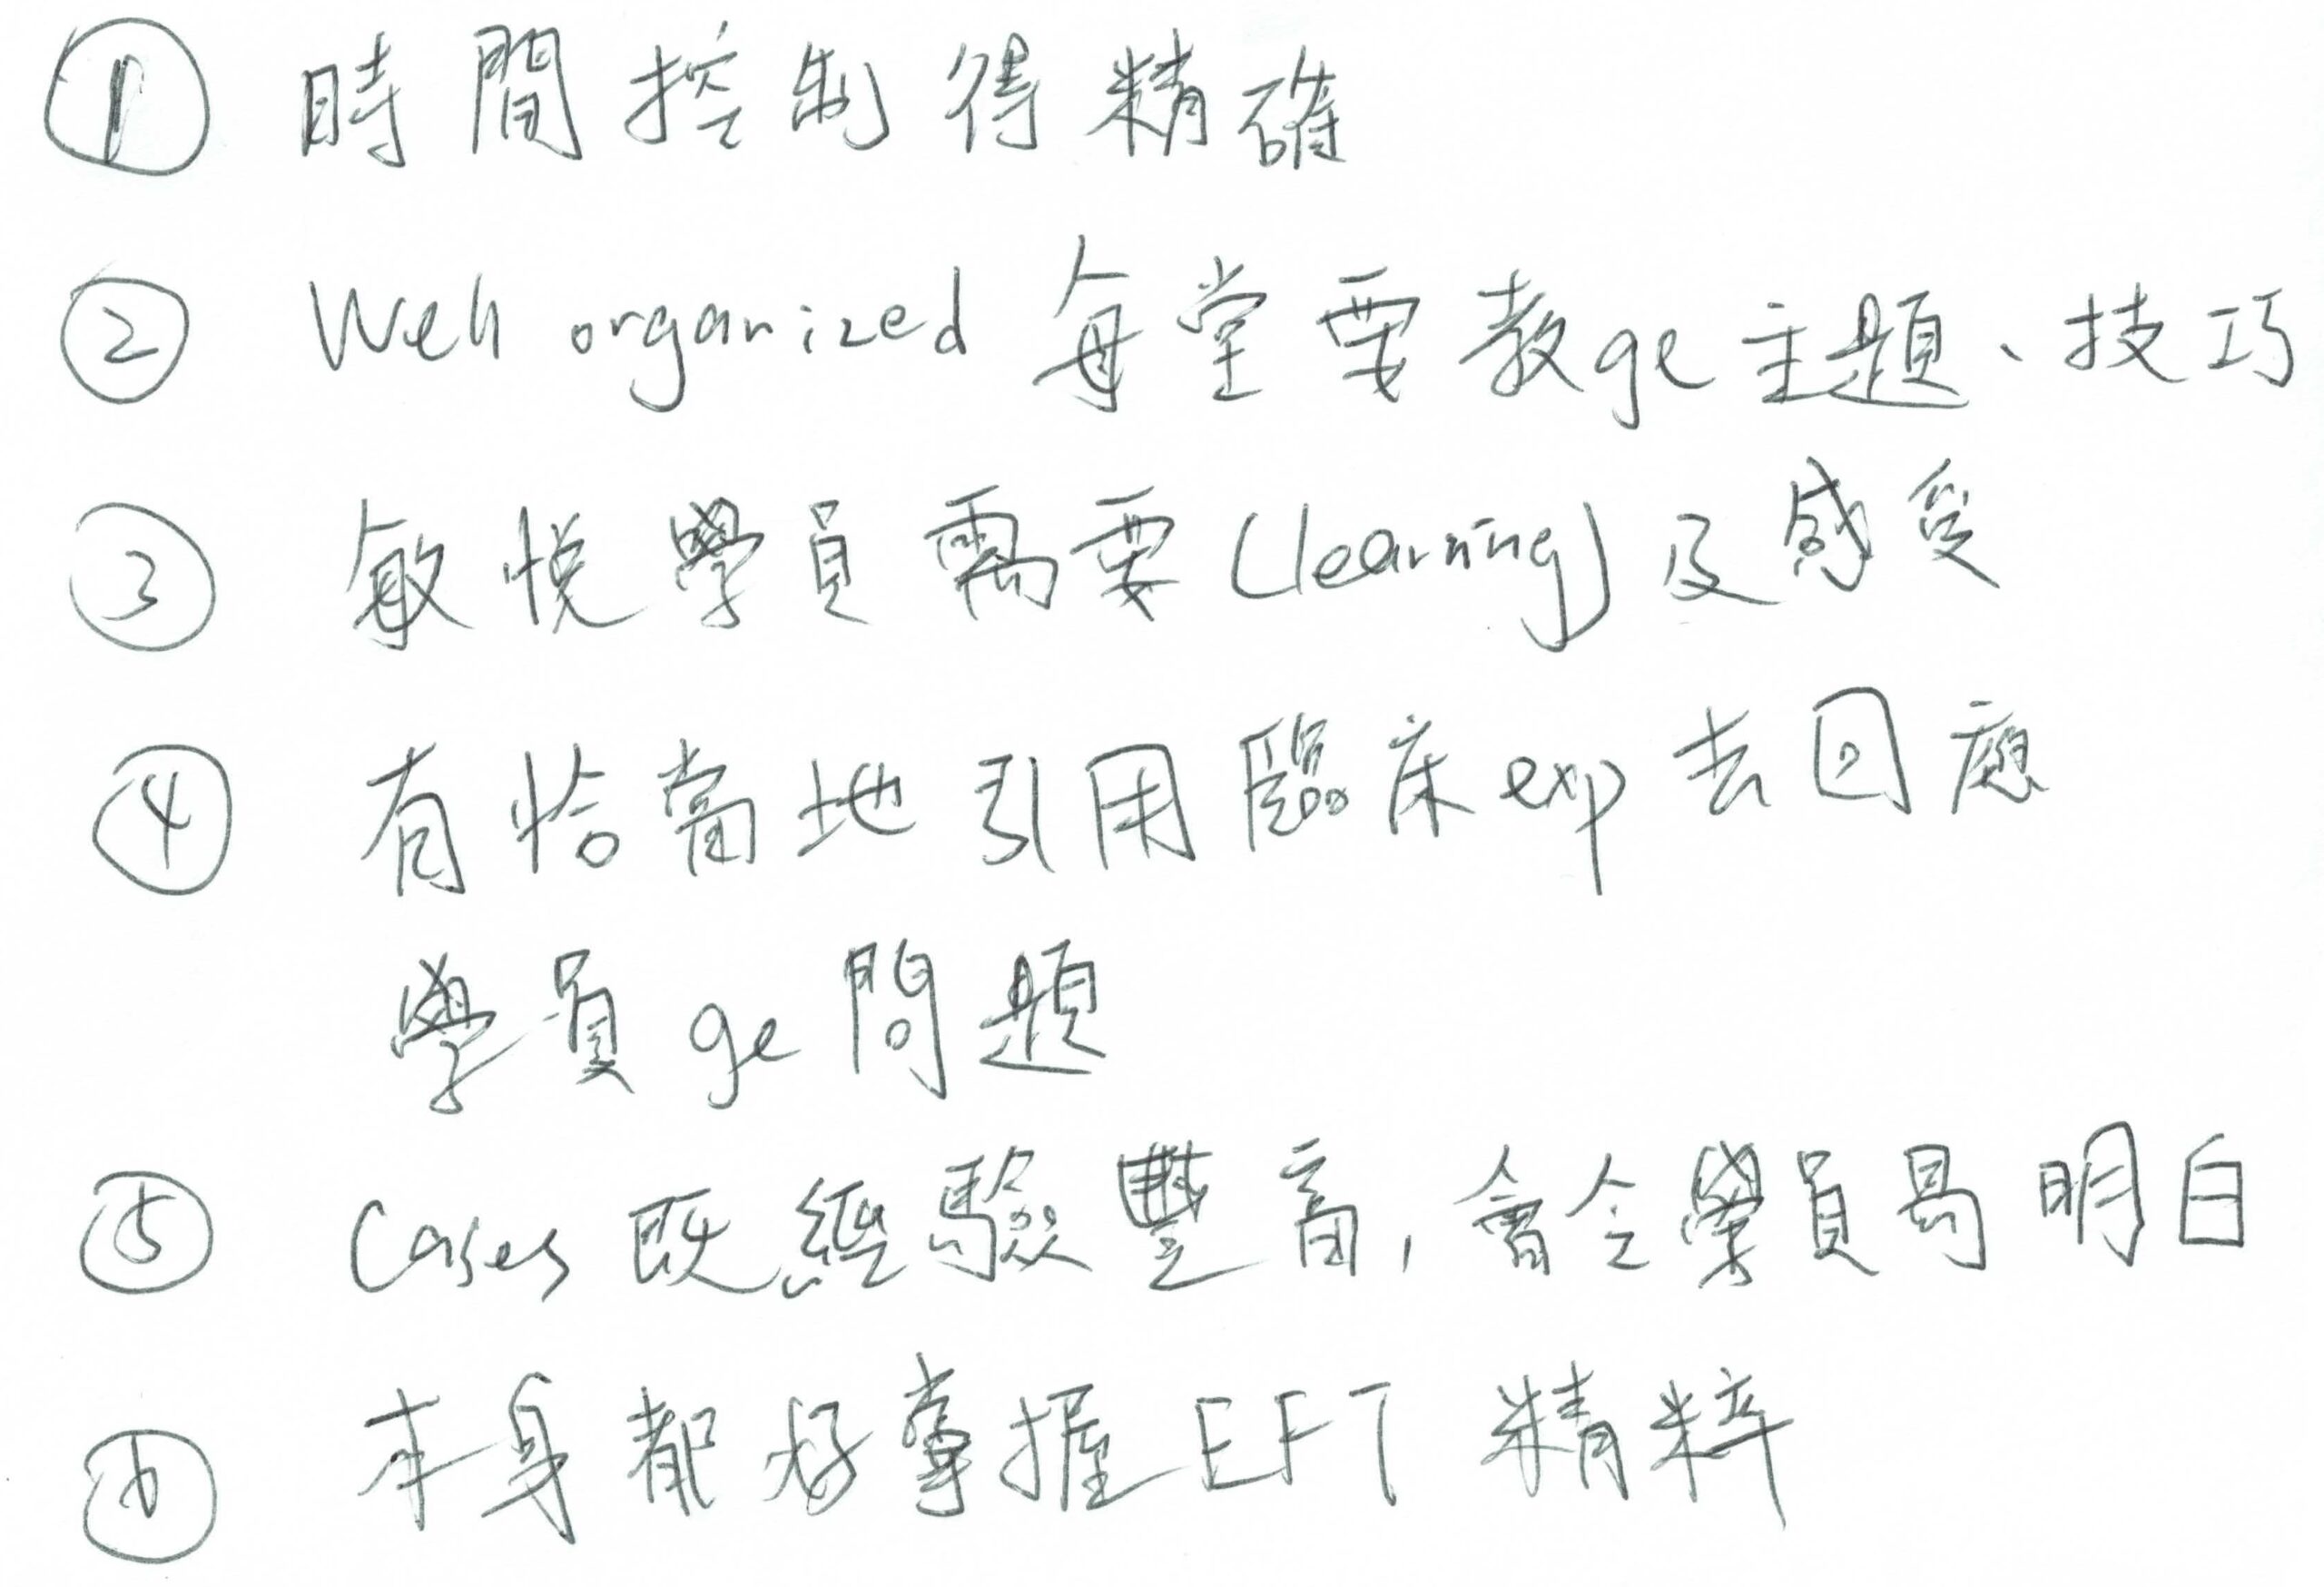 ① 時間控制得精確
② Well organized 每堂要教ge主題、技巧
③ 敏悅學員需要(learning)及感受
④ 有恰當地引用臨床exp去回應
學員ge問題
⑤ Cases 既經驗豐富,會令學員易明白
⑥ 本身都好掌握EFT 精粹